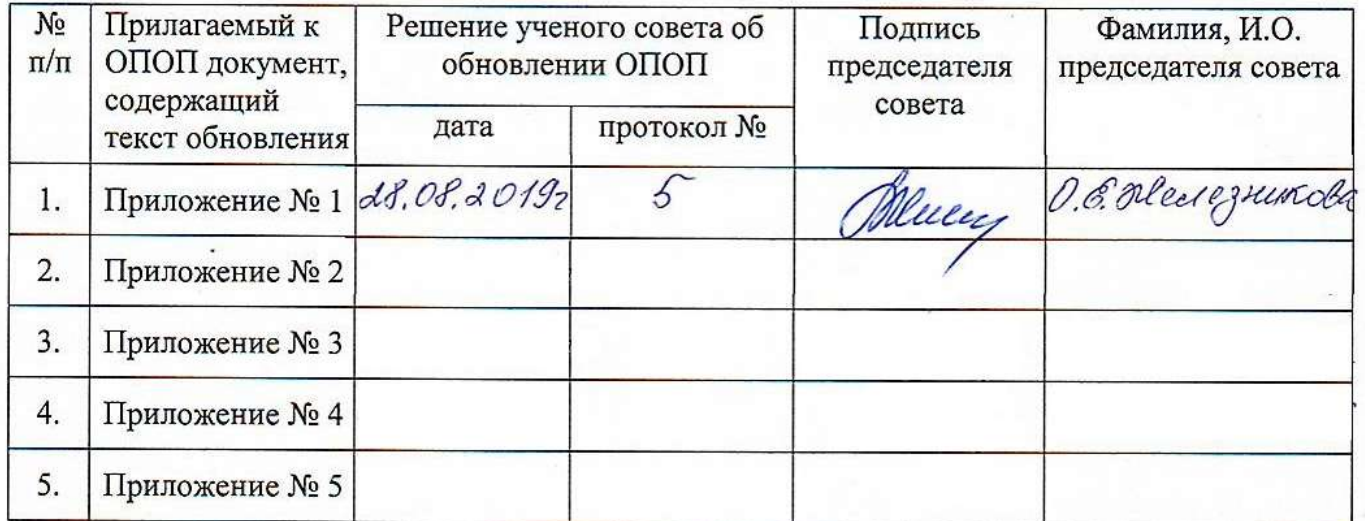 № п/п
Прилагаемый к
ОПОП документ,
содержащий
текст обновления
Решение ученого совета об
обновлении ОПОП
дата
протокол №
Подпись
председателя
совета
Фамилия, И.О.
председателя совета
1. Приложение № 1 28.08.2019г 5 О.Е.Железникова
2. Приложение № 2
3. Приложение № 3
4. Приложение № 4
5. Приложение № 5